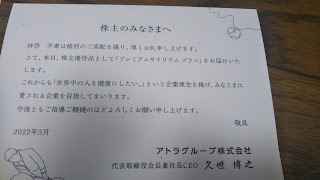 株主のみなさまへ
拝啓　平素は格別のご高配を賜り、厚くお礼申し上げます。
さて、本日、株主優待品として「プレミアムサイリウムブラン」をお届けいた
します。
これからも「世界中の人を健康にしたい。」という企業理念を掲げ、みなさまに
愛される企業を目指してまいります。
今後ともご指導ご鞭撻のほどよろしくお願い申し上げます。
敬具
2022年3月
アトラグループ株式会社
代表取締役会長兼社長CEO 久世 博之